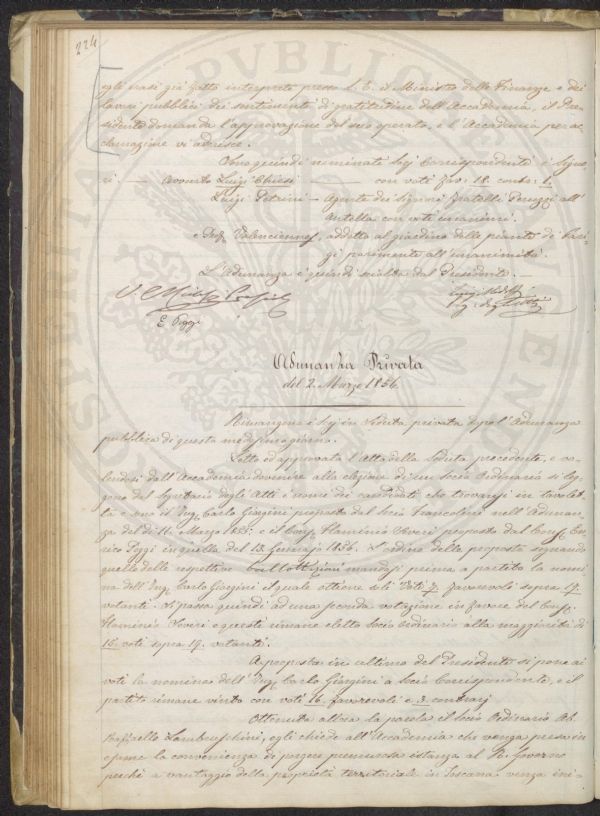 224
egli erasi già fatto interprete presso S. E. il Ministro delle Finanze e dei
lavori pubblici dei sentimenti di gratitudine dell'Accademia, il Pre-
sidente domanda l'approvazione del suo operato, e l'Accademia per ac-
clamazione vi aderisce.
Sono quindi nominati Socj Corrispondenti i Signo-
ri. — Avvocato Luigi Chiesi — con voti fav: 18. contr: 1.
Luigi Petrini — Agente dei Signori Fratelli Peruzzi all'
Antella con voti unanimi.
e Prof. Valenciennes, addetto al giardino delle piante di Pari-
gi parimente all'unanimità.
L'Adunanza è quindi sciolta dal Presidente. —
E. Poggi
Adunanza Privata
del 2. Marzo 1856.
Rimangono i Socj in seduta privata dopo l'Adunanza
pubblica di questo medesimo giorno.
Letto ed approvato l'Atto della Seduta precedente, e vo-
lendosi dall'Accademia devenire alla elezione di un Socio Ordinario si leg-
gono dal Segretario degli Atti i nomi dei candidati che trovansi in tavolet-
ta e sono il Sig. Carlo Giorgini proposto dal Socio Francolini nell'Adunan-
za del dì 11. Marzo 1855; e il Consr. Flaminio Severi proposto dal Consr. En-
rico Poggi in quella del 13. Gennajo 1856. L'ordine delle proposte segnando
quello delle respettive ballottazioni mandasi prima a partito la nomi-
na dell'Ing. Carlo Giorgini il quale ottiene soli Voti 7. favorevoli sopra 17.
votanti. Si passa quindi ad una seconda votazione in favore del Consr.
Flaminio Severi e questi rimane eletto Socio Ordinario alla maggiorità di
15. voti sopra 19. votanti.
A proposta in ultimo del Presidente si pone ai
voti la nomina dell'Ing. Carlo Giorgini a Socio Corrispondente, e il
partito rimane vinto con voti 16. favorevoli e 3. contrarj
Ottenuta allora la parola il Socio Ordinario Ab.
Raffaello Lambruschini, egli chiede all'Accademia che venga presa in
esame la convenienza di porgere premurosa istanza al R. Governo
perchè a vantaggio della proprietà territoriale in Toscana venga ini-